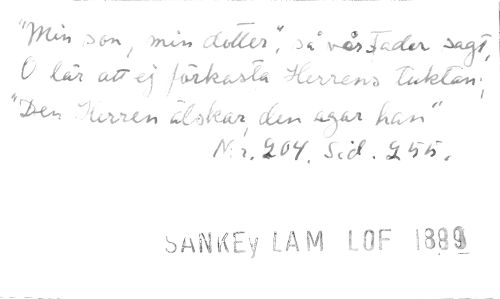 "Min son, min dotter", så vår Fader sagt,
O lär att ej förkasta Herrens tuktan;
"Den Herren älskar, den agar han"
Nr. 204. Sid. 255.
SANKEY LAM LOF 1889